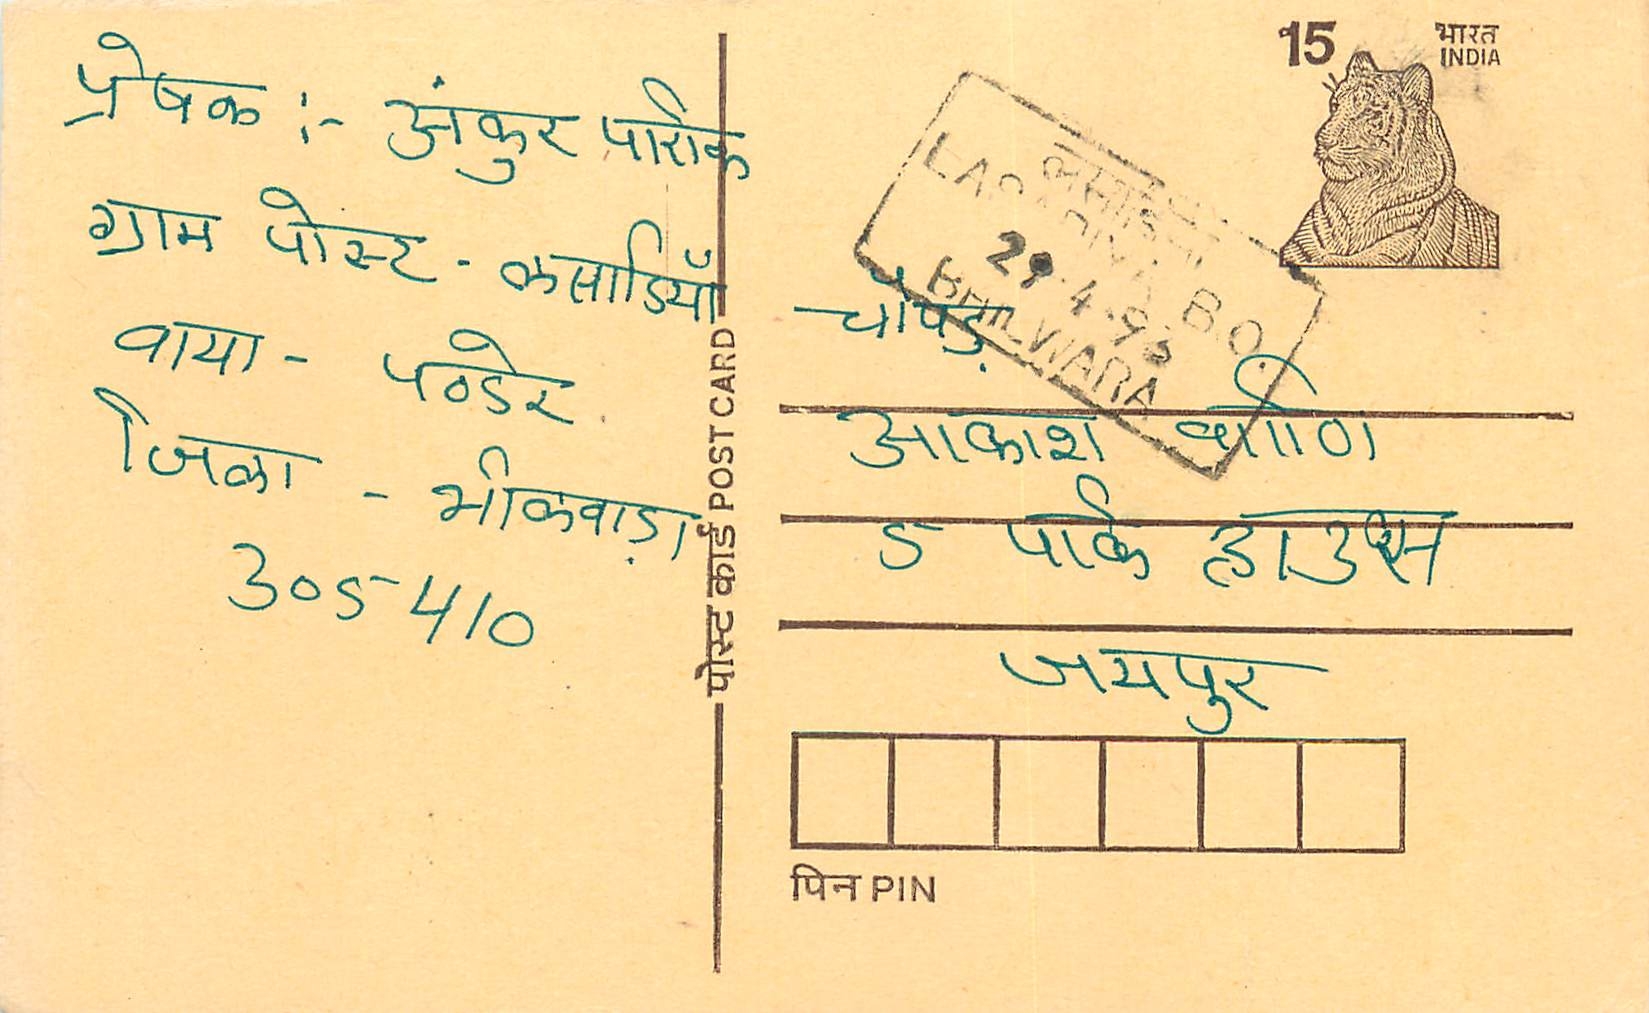 प्रेषक :- अंकुर पारीक
ग्राम पोस्ट - कसाडियाँ
वाया - पण्डेर
जिला - भीलवाड़ा
305410
पोस्ट कार्ड POST CARD
15
भारत
INDIA
B.O.
BHILWARA
चौपड़
आकाश वाणि
5 पार्क हाउस
जयपुर
पिन PIN